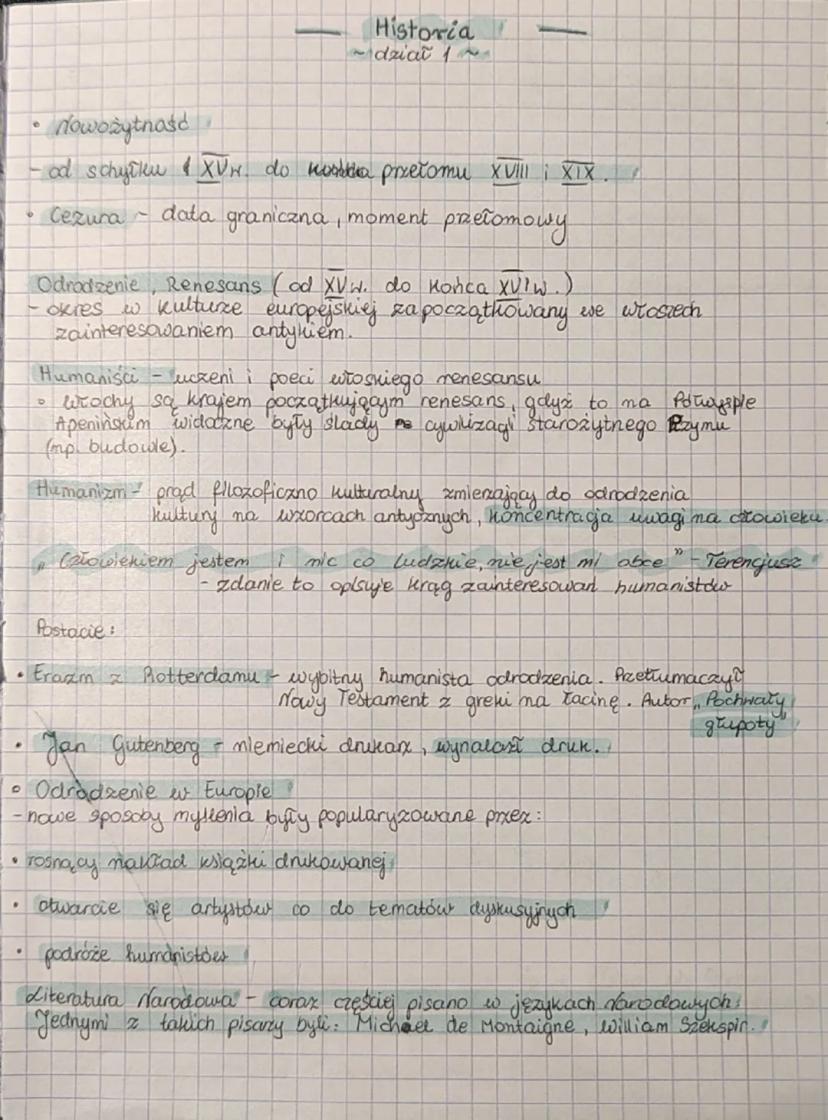 Historia
~ dział 1 ~
• Nowożytność
- od schyłku XV w. do przełomu XVIII i XIX.
• Cezura - data graniczna, moment przełomowy
Odrodzenie, Renesans (od XV w. do końca XVI w.)
- okres w kulturze europejskiej zapoczątkowany we włoszech
zainteresowaniem antykiem.
Humaniści - uczeni i poeci włoskiego renesansu
◦ Włochy są krajem początkującym renesans, gdyż to na Półwyspie
Apenińskim widoczne były ślady cywilizacji starożytnego Rzymu
(np. budowle).
Humanizm - prąd filozoficzno kulturalny zmierzający do odrodzenia
kultury na wzorcach antycznych, koncentracja uwagi na człowieku.
„Człowiekiem jestem i nic co ludzkie, nie jest mi obce" - Terencjusz
- zdanie to opisuje krąg zainteresowań humanistów
Postacie:
• Erazm z Rotterdamu - wybitny humanista odrodzenia. Przetłumaczył
Nowy Testament z greki na łacinę. Autor „Pochwały
głupoty"
• Jan Gutenberg - niemiecki drukarz, wynalazł druk.
◦ Odrodzenie w Europie
- nowe sposoby myślenia były popularyzowane przez:
• rosnący nakład książki drukowanej
• otwarcie się artystów co do tematów dyskusyjnych
• podróże humanistów
Literatura Narodowa - coraz częściej pisano w językach Narodowych.
Jednymi z takich pisarzy byli: Michael de Montaigne, William Szekspir.